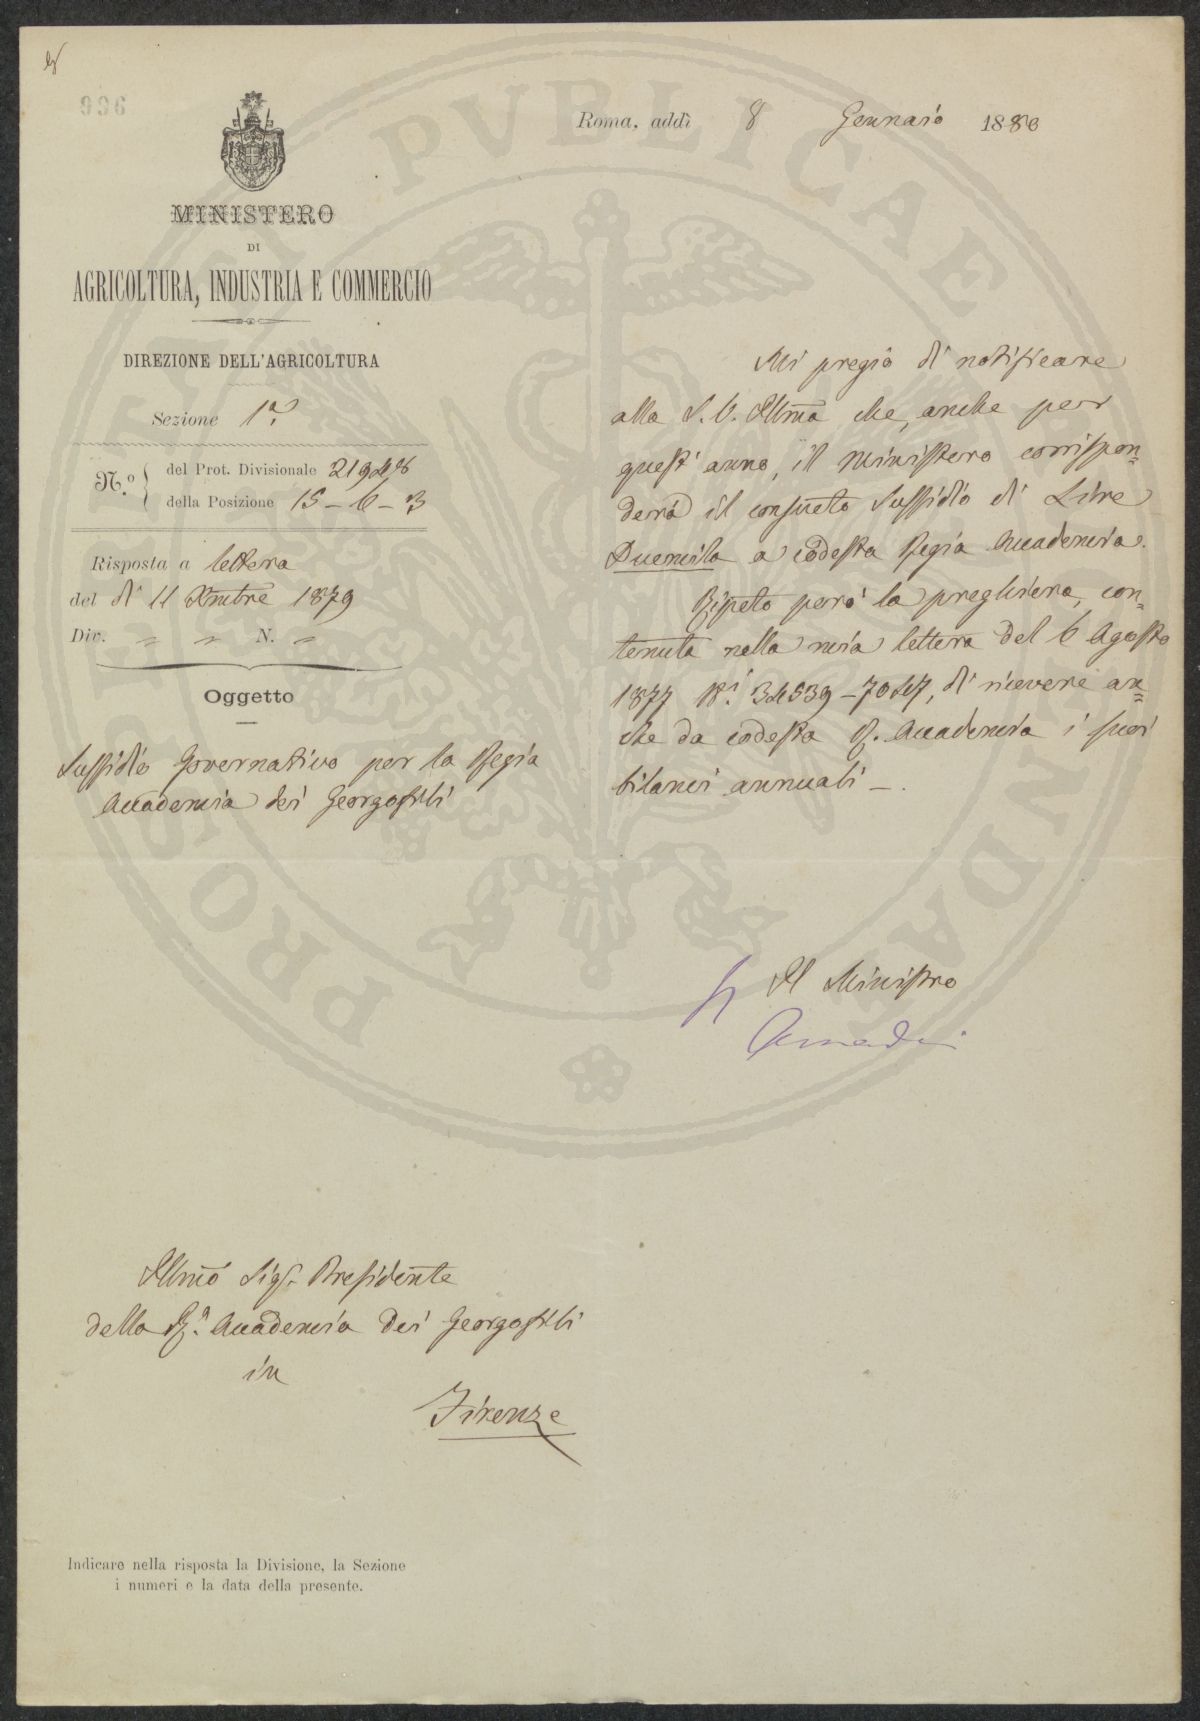 996
Roma, addì 8 Gennaio 1880
MINISTERO
DI
AGRICOLTURA, INDUSTRIA E COMMERCIO
DIREZIONE DELL'AGRICOLTURA
Sezione 1ª
N.º del Prot. Divisionale
della Posizione 15-6-3
Risposta a lettera
del dì 11 Xmbre 1879
Div. " " N. "
Oggetto
Sussidio Governativo per la Regia
Accademia dei Georgofili
Mi pregio di notificare
alla S. V. Illma che, anche per
quest'anno, il Ministero corrispon=
derà il consueto sussidio di Lire
Duemila a codesta Regia Accademia.
Ripeto però la preghiera, con=
tenuta nella mia lettera del 6 Agosto
1877 Ni 34539-7047, di ricevere an=
che da codesta R. Accademia i suoi
bilanci annuali -.
Il Ministro
Illmo Sigr. Presidente
della Rª. Accademia dei Georgofili
in
Firenze
Indicare nella risposta la Divisione, la Sezione
i numeri e la data della presente.
PROSPERITATI PVBLICAE AVGENDAE